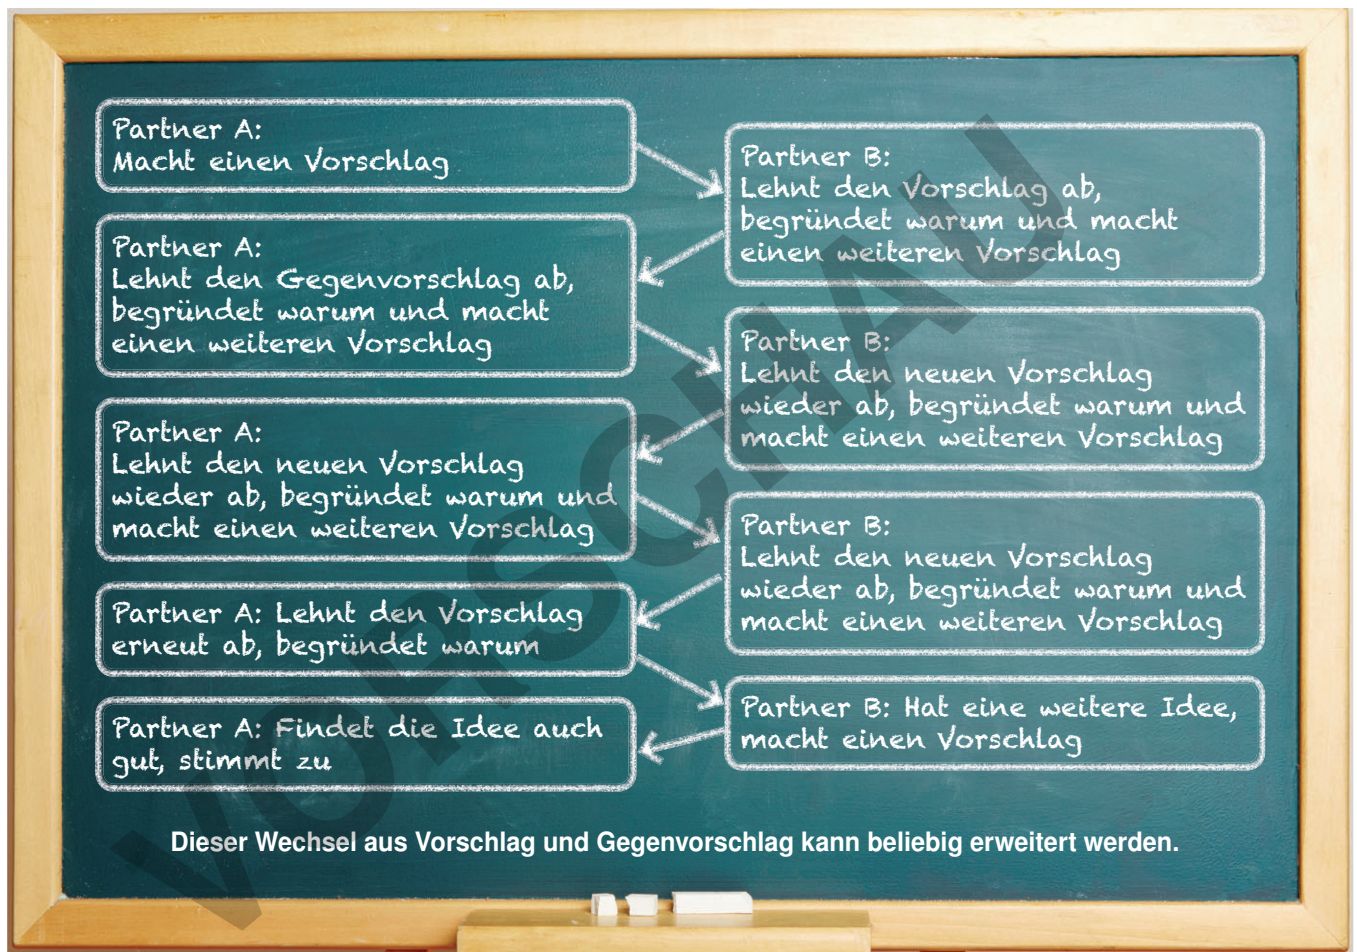 Partner A:
Macht einen Vorschlag
Partner B:
Lehnt den Vorschlag ab,
begründet warum und macht
einen weiteren Vorschlag
Partner A:
Lehnt den Gegenvorschlag ab,
begründet warum und macht
einen weiteren Vorschlag
Partner B:
Lehnt den neuen Vorschlag
wieder ab, begründet warum und
macht einen weiteren Vorschlag
Partner A:
Lehnt den neuen Vorschlag
wieder ab, begründet warum und
macht einen weiteren Vorschlag
Partner B:
Lehnt den neuen Vorschlag
wieder ab, begründet warum und
macht einen weiteren Vorschlag
Partner A: Lehnt den Vorschlag
erneut ab, begründet warum
Partner B: Hat eine weitere Idee,
macht einen Vorschlag
Partner A: Findet die Idee auch
gut, stimmt zu
Dieser Wechsel aus Vorschlag und Gegenvorschlag kann beliebig erweitert werden.
VORSCHAU